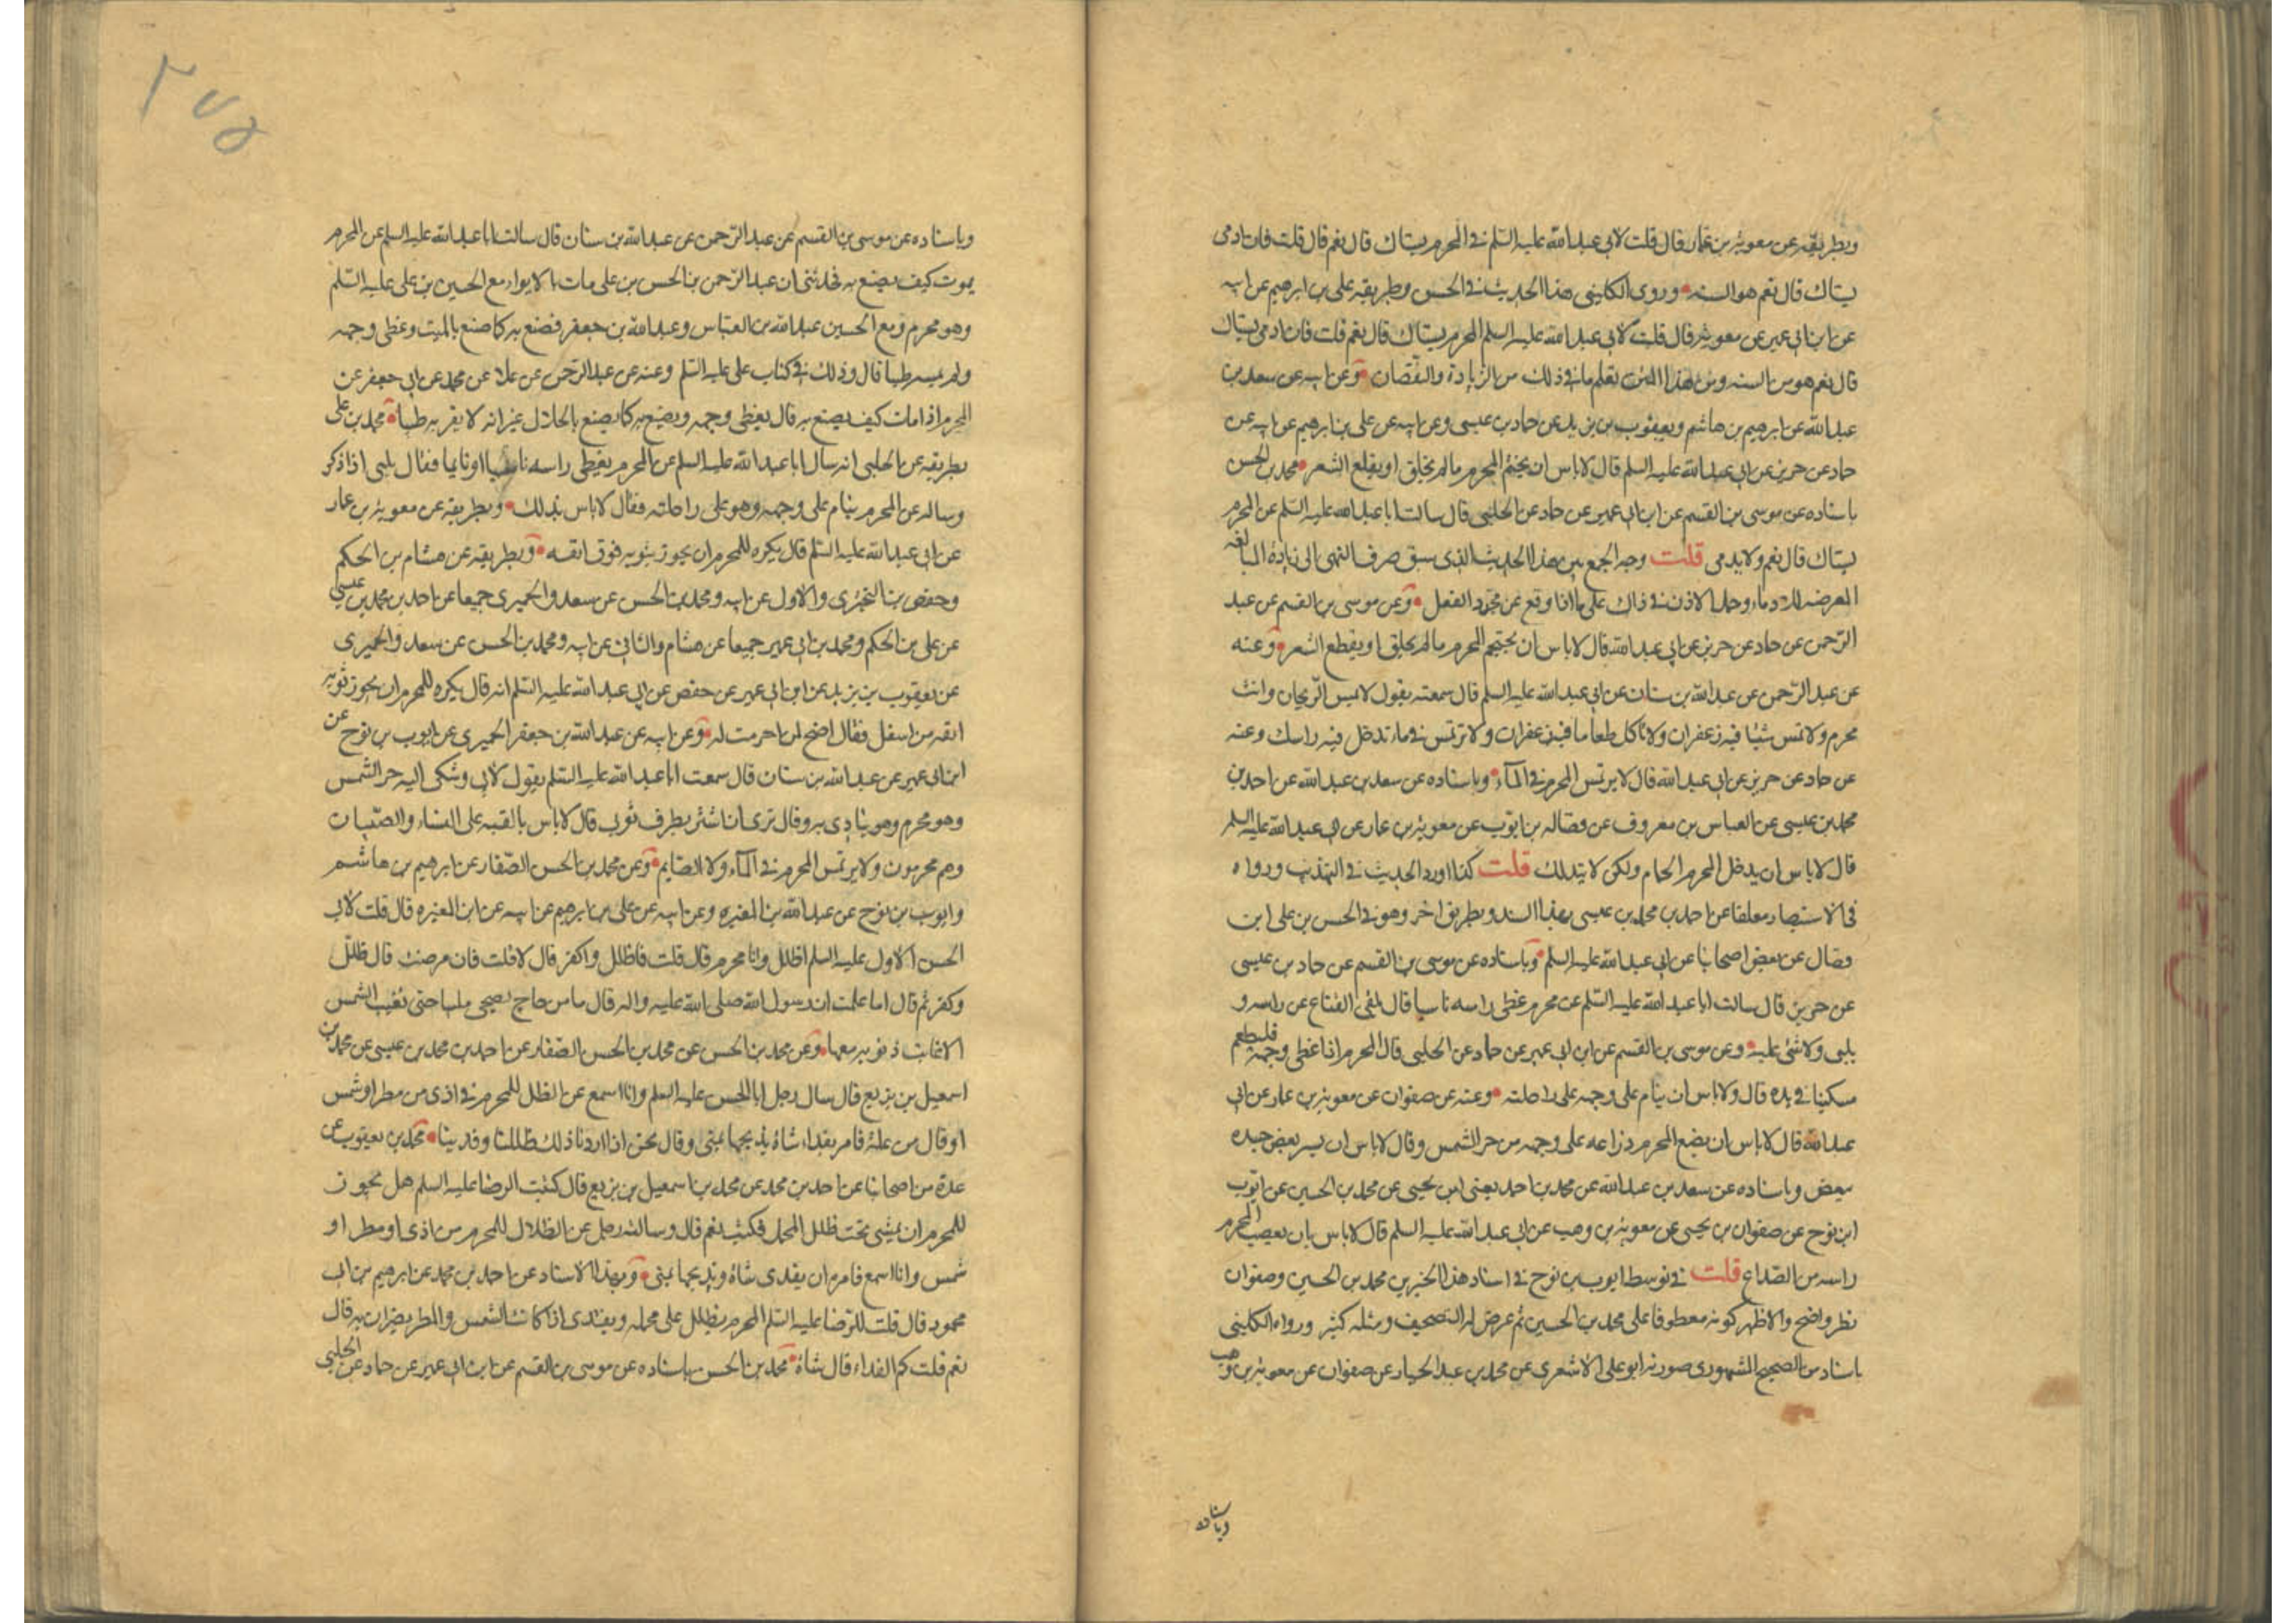 وبطريقه عن معوية بن عمار قال قلت لابى عبد الله عليه السلم فى المحرم يستاك قال نعم قال قلت فان ادمى
يستاك قال نعم هو السنه وروى الكلينى هذا الحديث فى الحسن وطريقه على بن ابرهيم عن ابيه
عن ابن ابى عمير عن معوية قال قلت لابى عبد الله عليه السلم المحرم يستاك قال نعم قلت فان ادمى يستاك
قال نعم هو من السنه ومن هذا المتن يعلم ما فى ذلك من الزيادة والنقصان وعن ابيه عن سعد بن
عبد الله عن ابرهيم بن هاشم ويعقوب بن يزيد عن حماد بن عيسى وعن ابيه عن على بن ابرهيم عن ابيه عن
حماد عن حريز عن ابى عبد الله عليه السلم قال لا باس ان يحتجم المحرم ما لم يحلق او يقلع الشعر محمد بن الحسن
باسناده عن موسى بن القسم عن ابن ابى عمير عن حماد عن الحلبى قال سالت ابا عبد الله عليه السلم عن المحرم
يستاك قال نعم ولا يدمى قلت وجه الجمع بين هذا الحديث الذى سبق صرف النهى الى زيادة المبالغه
المعرضه للادماء وحمل الاذن فى ذاك على ما اذا وقع عن مجرد الفعل وعن موسى بن القسم عن عبد
الرحمن عن حماد عن حريز عن ابى عبد الله قال لا باس ان يحتجم المحرم ما لم يحلق او يقطع الشعر وعنه
عن عبد الرحمن عن عبد الله بن سنان عن ابى عبد الله عليه السلم قال سمعته يقول لا تمس الريحان وانت
محرم ولا تمس شيئا فيه زعفران ولا تاكل طعاما فيه زعفران ولا ترتمس فى ماء تدخل فيه راسك وعنه
عن حماد عن حريز عن ابى عبد الله قال لا يرتمس المحرم فى الماء وباسناده عن سعد بن عبد الله عن احمد بن
محمد بن عيسى عن العباس بن معروف عن فضاله بن ايوب عن معوية بن عمار عن ابى عبد الله عليه السلم
قال لا باس ان يدخل المحرم الحمام ولكن لا يتدلك قلت كذا اورد الحديث فى التهذيب ورواه
فى الاستبصار معلقا عن احمد بن محمد بن عيسى بهذا السند وبطريق اخر وهو فى الحسن بن على ابن
فضال عن بعض اصحابنا عن ابى عبد الله عليه السلم وباسناده عن موسى بن القسم عن حماد بن عيسى
عن حريز قال سالت ابا عبد الله عليه السلم عن محرم غطى راسه ناسيا قال يلقى القناع عن راسه و
يلبى ولا شئ عليه وعن موسى بن القسم عن ابن ابى عمير عن حماد عن الحلبى قال المحرم اذا غطى وجهه فليطعم
مسكينا فى يده قال ولا باس ان ينام على وجهه على راحلته وعنه عن صفوان عن معوية بن عمار عن ابى
عبد الله قال لا باس ان يضع المحرم ذراعه على وجهه من حر الشمس وقال لا باس ان يستر بعض جسده
ببعض وباسناده عن سعد بن عبد الله عن محمد بن احمد يعنى ابن يحيى عن محمد بن الحسين عن ايوب
ابن نوح عن صفوان بن يحيى عن معوية بن وهب عن ابى عبد الله عليه السلم قال لا باس بان يعصب المحرم
راسه من الصداع قلت فى توسط ايوب بن نوح فى اسناد هذا الخبر بين محمد بن الحسين وصفوان
نظر واضح والاظهر كونه معطوفا على محمد بن الحسين ثم عرض له التصحيف ومثله كثير ورواه الكلينى
باسناد من الصحيح المشهورى صورته ابو على الاشعرى عن محمد بن عبد الجبار عن صفوان عن معوية بن وهب
وباسناده
٢٧٥
وباسناده عن موسى بن القسم عن عبد الرحمن عن عبد الله بن سنان قال سالت ابا عبد الله عليه السلم عن المحرم
يموت كيف يصنع به فحدثنى ان عبد الرحمن بن الحسن بن على مات بالابواء مع الحسين بن على عليه السلم
وهو محرم ومع الحسين عبد الله بن العباس وعبد الله بن جعفر فصنع به كما صنع بالميت وغطى وجهه
ولم يمسه طيبا قال وذلك فى كتاب على عليه السلم وعنه عن عبد الرحمن عن علا عن محمد عن ابى جعفر عن
المحرم اذا مات كيف يصنع به قال يغطى وجهه ويصنع به كما يصنع بالحلال غير انه لا يقربه طيبا محمد بن على
بطريقه عن الحلبى انه سال ابا عبد الله عليه السلم عن المحرم يغطى راسه ناسيا او نايما فقال يلبى اذا ذكر
وساله عن المحرم ينام على وجهه وهو على راحلته فقال لا باس بذلك وبطريقه عن معوية بن عمار
عن ابى عبد الله عليه السلم قال يكره للمحرم ان يجوز ثوبه فوق انفه وبطريقه عن هشام بن الحكم
وحفص بن البخترى والاول عن ابيه ومحمد بن الحسن عن سعد والحميرى جميعا عن احمد بن محمد بن عيسى
عن على بن الحكم ومحمد بن ابى عمير جميعا عن هشام والثانى عن ابيه ومحمد بن الحسن عن سعد والحميرى
عن يعقوب بن يزيد عن ابن ابى عمير عن حفص عن ابى عبد الله عليه السلم انه قال يكره للمحرم ان يجوز ثوبه
انفه من اسفل وقال اضح لمن احرمت له وعن ابيه عن عبد الله بن جعفر الحميرى عن ايوب بن نوح عن
ابن ابى عمير عن عبد الله بن سنان قال سمعت ابا عبد الله عليه السلم يقول لابى وشكى اليه حر الشمس
وهو محرم وهو يتاذى به وقال ترى ان استتر بطرف ثوبى قال لا باس بالقبه على النساء والصبيان
وهم محرمون ولا يرتمس المحرم فى الماء ولا الصايم وعن محمد بن الحسن الصفار عن ابرهيم بن هاشم
وايوب بن نوح عن عبد الله بن المغيره وعن ابيه عن على بن ابرهيم عن ابيه عن ابن المغيره قال قلت لابى
الحسن الاول عليه السلم اظلل وانا محرم قال لا قلت فاظلل واكفر قال لا قلت فان مرضت قال ظلل
وكفر ثم قال اما علمت ان رسول الله صلى الله عليه واله قال ما من حاج يضحى ملبيا حتى تغيب الشمس
الا غابت ذنوبه معها وعن محمد بن الحسن عن محمد بن الحسن الصفار عن احمد بن محمد بن عيسى عن محمد بن
اسمعيل بن بزيع قال سال رجل ابا الحسن عليه السلم وانا اسمع عن الظل للمحرم فى اذى من مطر او شمس
او قال من علة فامر بفداء شاة يذبحها بمنى وقال نحن اذا اردنا ذلك ظللنا وفدينا محمد بن يعقوب عن
عدة من اصحابنا عن احمد بن محمد عن محمد بن اسمعيل بن بزيع قال كتبت الى الرضا عليه السلم هل يجوز
للمحرم ان يمشى تحت ظلل المحمل فكتب نعم قال وساله رجل عن الظلال للمحرم من اذى او مطر او
شمس وانا اسمع فامره ان يفدى شاة ويذبحها بمنى وبهذا الاسناد عن احمد بن محمد عن ابرهيم بن ابى
محمود قال قلت للرضا عليه السلم المحرم يظلل على محمله ويفتدى اذا كانت الشمس والمطر يضران به قال
نعم قلت كم الفداء قال شاة محمد بن الحسن باسناده عن موسى بن القسم عن ابن ابى عمير عن حماد عن الحلبى